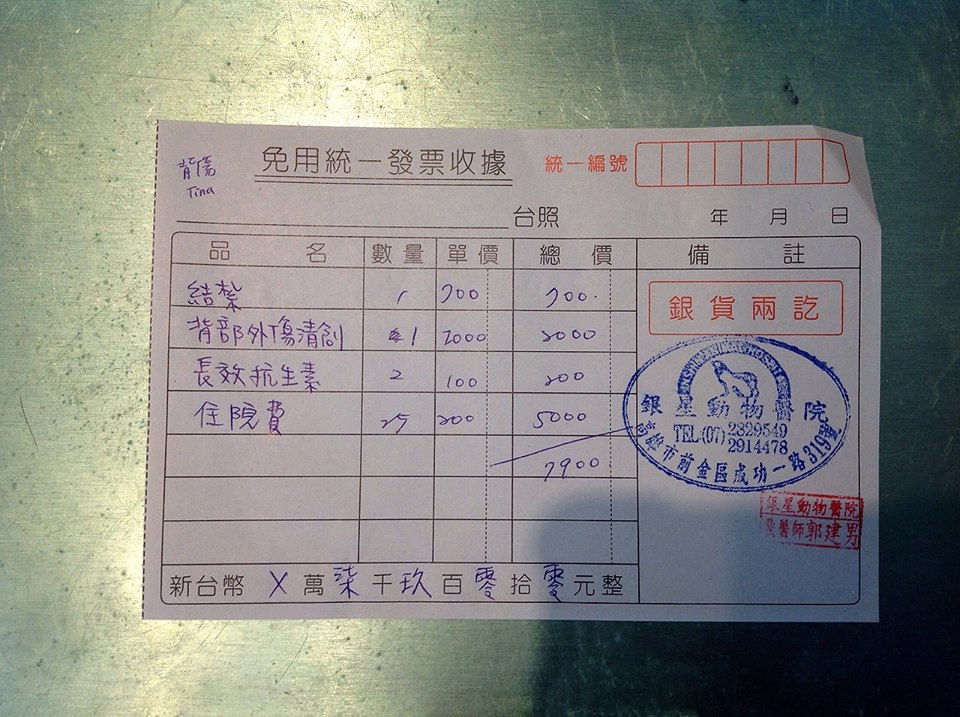 背傷
Tina
免用統一發票收據
統一編號
台照 年 月 日
品 名 數量 單價 總價 備註
結紮 1 700 700.
背部外傷清創 1 2000 2000
長效抗生素 2 100 200
住院費 25 200 5000
7900
新台幣 X 萬 柒 千 玖 百 零 拾 零 元整
銀貨兩訖
銀星動物醫院
TEL(07)2829549
2914478
高雄市前金區成功一路319號
銀星動物醫院
獸醫師郭建男